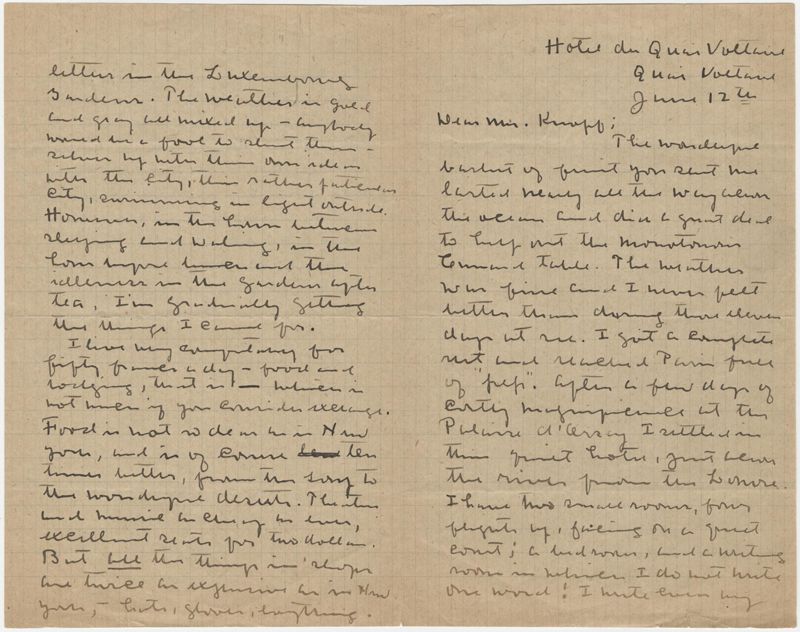 Hotel du Quai Voltaire
Quai Voltaire
June 12th
Dear Mr. Knopf;
The wonderful
basket of fruit you sent me
lasted nearly all the way across
the ocean and did a great deal
to help out the monotonous
Cunard table. The weather
was fine and I never felt
better than during those eleven
days at sea. I got a complete
rest and reached Paris full
of "pep". After a few days of
costly magnificence at the
Palais d'Orsay I settled in
this quiet hotel, just across
the river from the Louvre.
I have two small rooms, four
flights up, facing on a quiet
court; a bedroom, and a writing
room in which I do not write
one word! I write even my
letters in the Luxembourg
Gardens. The weather is gold
and gray all mixed up - anybody
would be a fool to shut them-
selves up with their own ideas
with the city, this rather
city, swimming in light outside.
However, in the hours between
sleeping and waking, in the
hours before and the
idleness in the gardens after
tea, I'm gradually getting
the things I came for.
I live very comfortably for
fifty francs a day - food and
lodging, that is - which is
not much if you consider exchange.
Food is not so dear as in New
York, and is of course ten
times better, from the soup to
the wonderful deserts. Theatres
and music as cheap as ever,
excellent seats for two dollars.
But all the things in shops
are twice as expensive as in New
York, - hats, gloves, everything.